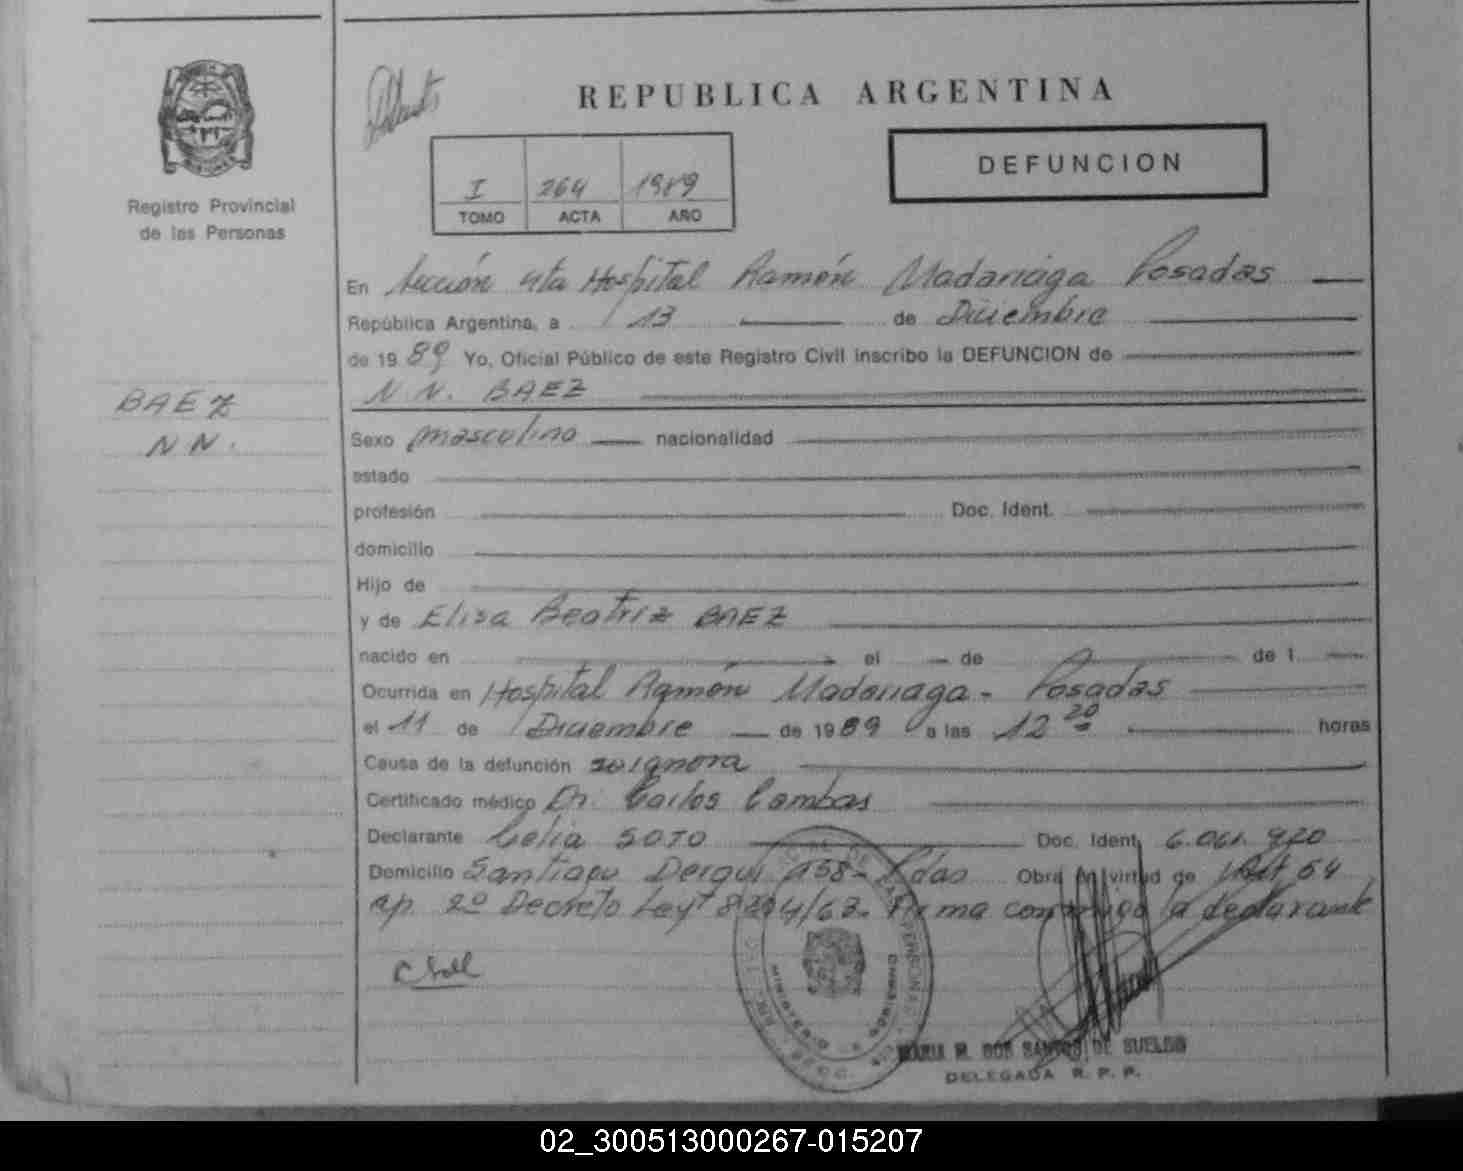 REPUBLICA ARGENTINA
DEFUNCION
I 264 1989
TOMO ACTA AÑO
Registro Provincial
de las Personas
En Sección 4ta Hospital Ramón Madariaga Posadas
República Argentina, a 13 de Diciembre
de 1989 Yo, Oficial Público de este Registro Civil inscribo la DEFUNCION de
N. N. BAEZ
BAEZ
N N.
Sexo masculino nacionalidad
estado
profesión Doc. Ident.
domicilio
Hijo de
y de Elisa Beatriz BAEZ
nacido en el de de 1
Ocurrida en Hospital Ramón Madariaga - Posadas
el 11 de Diciembre de 1989 a las 12 20 horas
Causa de la defunción se ignora
Certificado médico Dr. Carlos Cambas
Declarante Celia SOTO Doc. Ident. 6.061.920
Domicilio Santiago Derqui 158 - Pdas Obra en virtud de 64
ap. 2º Decreto Ley 8204/63. Firma conmigo la declarante
MARIA M. DOS SANTOS DE SUELDO
DELEGADA R. P. P.
02_300513000267-015207